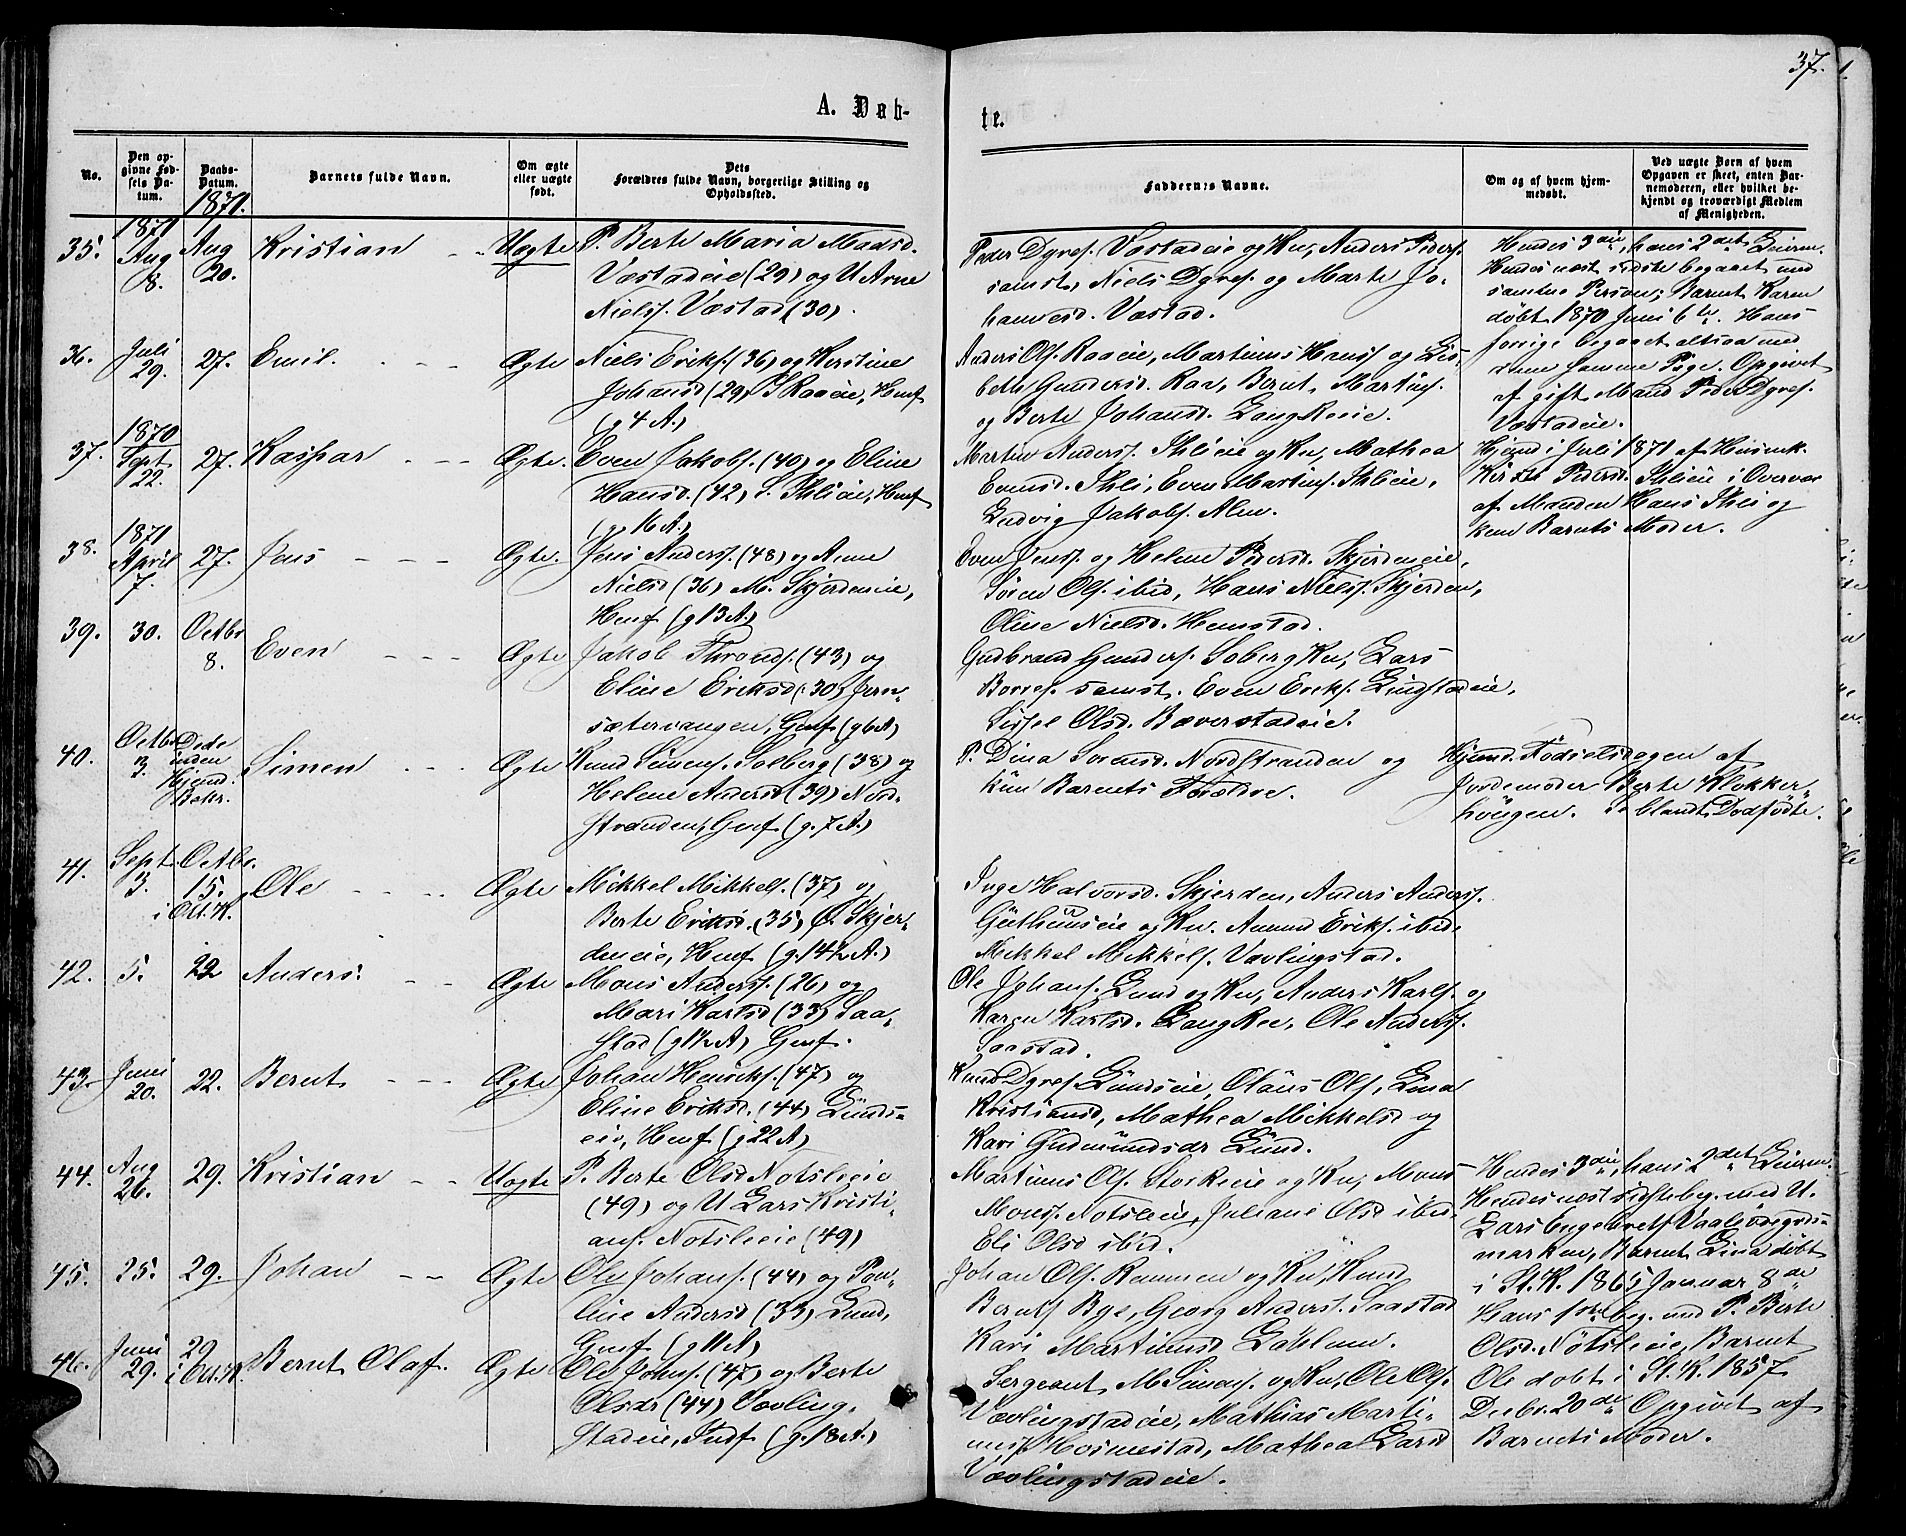 37.
A. Døb-
te.
No.
Den op-
givne Fød-
sels Da-
tum.
Daabs-
Datum.
Barnets fulde Navn.
Om ægte
eller uægte
født.
Dets
Forældres fulde Navn, borgerlige Stilling og
Opholdssted.
Faddernes Navne.
Om og af hvem hjem-
medøbt.
Ved uægte Børn af hvem
Opgaven er skeet, enten Bar-
nemoderen, eller hvilket be-
kjendt og troværdigt Medlem
af Menigheden.
35.
1871
Aug
8.
1871.
Aug
20.
Kristian
Uægte
P. Berte Maria Madsd.
Væstadeie (29) og U. Arne
Nielss. Væstad (30).
Peder Dyres. Væstadeie og Ku, Anders Peders.
samst, Niels Dyres. og Marte Jo-
hannesd. Væstad.
Hendes 3die, hans 2det Leierm.
Hendes næst sidste begaaet med
samme Person; Barnet Karen
døbt 1870 Juni 6te. Hans
forrige begaaet altsaa med
denne samme Pige. Opgivet
af gift Mand Peder Dyres.
Væstadeie.
36.
Juli
29.
27.
Emil.
Ægte
Niels Eriks. (36) og Kerstine
Johansd (29) Raaeie, Hemf
(g 4 A.)
Anders Ols. Raaeie, Martinus Hanss og Lis-
beth Gundersd. Raa, Bernt, Martins.
og Berte Johansd. Langkeeie.
37.
1870
Sept
22.
27.
Kaspar
Ægte.
Even Jakobs. (40) og Eline
Hansd. (42) S. Ihlieie, Hemf
(g. 16 A.)
Martin Anderss. Ihlieie og Ku, Mathea
Evensd. Ihli, Even Martins. Ihlieie,
Ludvig Jakobs. Alm.
Hjemd i Juli 1871 af Huusmk.
Kirsti Pedersd. Ihlieie i Overvær
af Manden Hans Ihli og
kun Barnets Moder.
38.
1871
April
7.
27.
Jens
Ægte.
Jens Anderss. (48) og Anne
Nielsd (36) M. Skjerdeneie,
Hemf (g 13 A.)
Even Jenss. og Helene Pedersd. Skjerdeneie,
Søren Ols. ibid, Hans Nielss. Skjerden,
Oline Nielsd. Hemstad.
39.
30.
Octbr
8.
Even
Ægte
Jakob Thronds. (43) og
Eline Eriksd (30) Jern-
sætervangen, Gmf. (g 6 A)
Gudbrand Gunders. Soberg Ku, Lars
Borres. samst. Even Eriks. Lindstadeie,
Sissel Olsd. Bæverstadeie.
40.
Octbr
3.
Døde
inden
Hjemd.
Bekr.
Simen
Ægte
Knud Simens. Solberg (38) og
Helene Andersd (39) Nord-
stranden, Gmf (g. 7 A.)
P. Dina Sorensd. Nordstranden og
kun Barnets Forældre.
Hjemd. Fødselsdagen af
Jordemoder Berte Klokker-
haugen. Se blandt Dødfødte.
41.
Sept
3.
Octbr.
15.
i Ott. K.
Ole
Ægte
Mikkel Mikkels. (37) og
Berte Eriksd. (35) Ø. Skjer-
deneie, Hemf (g. 14½ A.)
Inge Halvorsd. Skjerden, Anders Anders.
Guthuuseie og Ku. Amund Eriks. ibid.
Mikkel Mikkels. Vævlingstad.
42.
5.
22
Anders.
Ægte
Mons Anderss. (26) og
Mari Karlsd (33) Saa-
stad (g 1½ A) Gmf.
Ole Johans. Lund og Ku, Anders Karls. og
Karen Karlsd. Langkee, Ole Anderss.
Saastad.
43.
Juni
20.
22.
Bernt
Ægte
Johan Henriks. (47) og
Eline Eriksd. (44) Lunds-
eie, Hemf (g 22 A)
Knud Dyres. Lundseie, Olaus Ols, Lina
Kristiansd, Mathea Mikkelsd og
Kari Gudmundsdr Lund.
44.
Aug
26.
29.
Kristian
Uægte
P. Berte Olsd Notsleeie
(49) og U Lars Kristi-
ans. Notsleeie (49)
Martinus Ols. Storkeie og Ku, Mons
Monss. Notsleeie, Juliane Olsd ibid.
Eli Olsd ibid.
Hendes 3die, hans 2det Leierm.
Hendes næst sidste beg. med U.
Lars Engebrets Vaalødegods-
mark, Barnet Lina døbt
i St. K. 1865 Januar 8de
Hans 1ste beg. med P. Berte
Olsd. Nötsleeie, Barnet
Ole døbt i St. K. 1857
Decbr. 20de Opgivet af
Barnets Moder.
45.
25.
29.
Johan
Ægte
Ole Johans. (44) og Pau-
line Andersd (33) Lund,
Gmf (g 11 A)
Johan Ols. Rennen og Ku, Knud
Bernts Bye, Georg Anders. Saastad
Kari Martinusd Dahlum.
46.
Juni
29.
29
i Ott. K
Bernt Olaf.
Ægte
Ole Johns. (47) og Berte
Olsdr (44) Vævling-
stadeie, Indf (g. 18 A.)
Sergeant M. Simens. og Ku, Ole Ols.
Vævlingstadeie, Mathias Marti-
nuss. Hosmestad, Mathea Larsd
Vævlingstadeie.